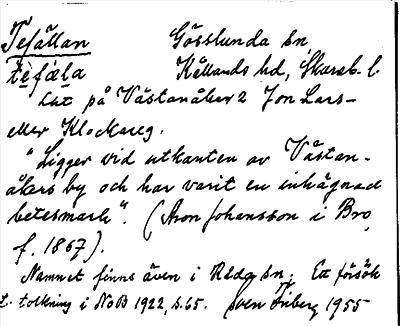 Tefällan Gösslunda sn,
tèfæ̀la Kållands hd, Skarab. l.
Lut på Västanåker 2 Jon Lars-
eller Klockareg.
"Ligger vid utkanten av Västan-
åkers by och har varit en inhägnad
betesmark". (Aron Johansson i Bro,
f. 1867).
Namnet finns även i Råda sn. Ett försök
t. tolkning i NoB 1922, s. 65. Sven Friberg 1955